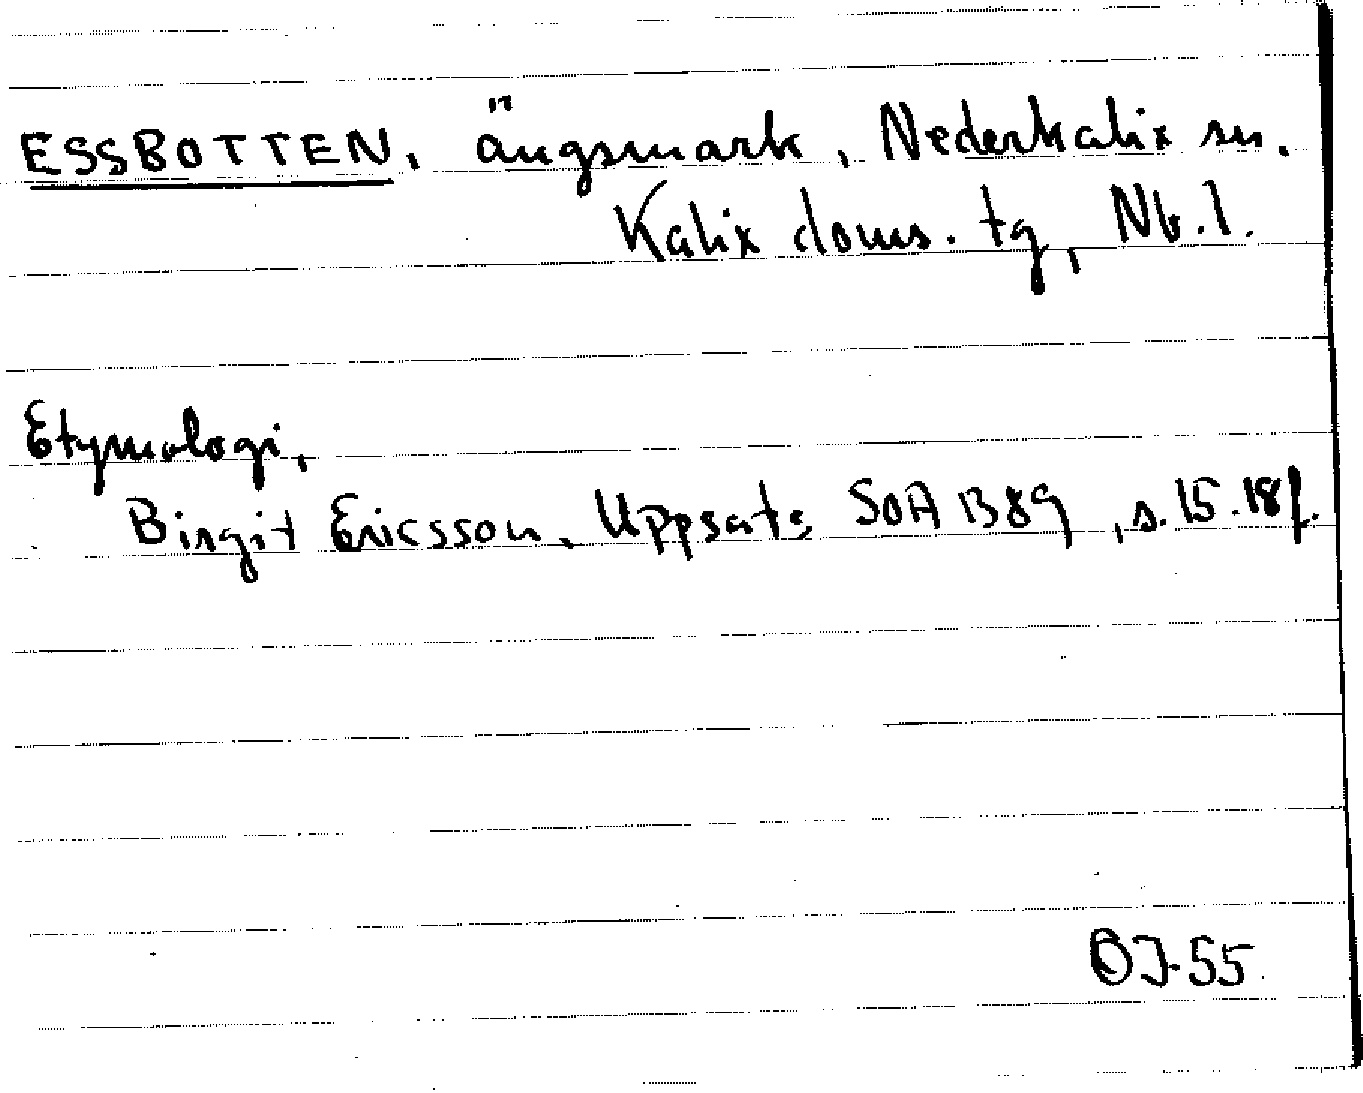 ESSBOTTEN, ängsmark, Nederkalix sn.
Kalix doms. tg, Nb. l.
Etymologi,
Birgit Ericsson, Uppsats SOA B89, s. 15. 18f.
55